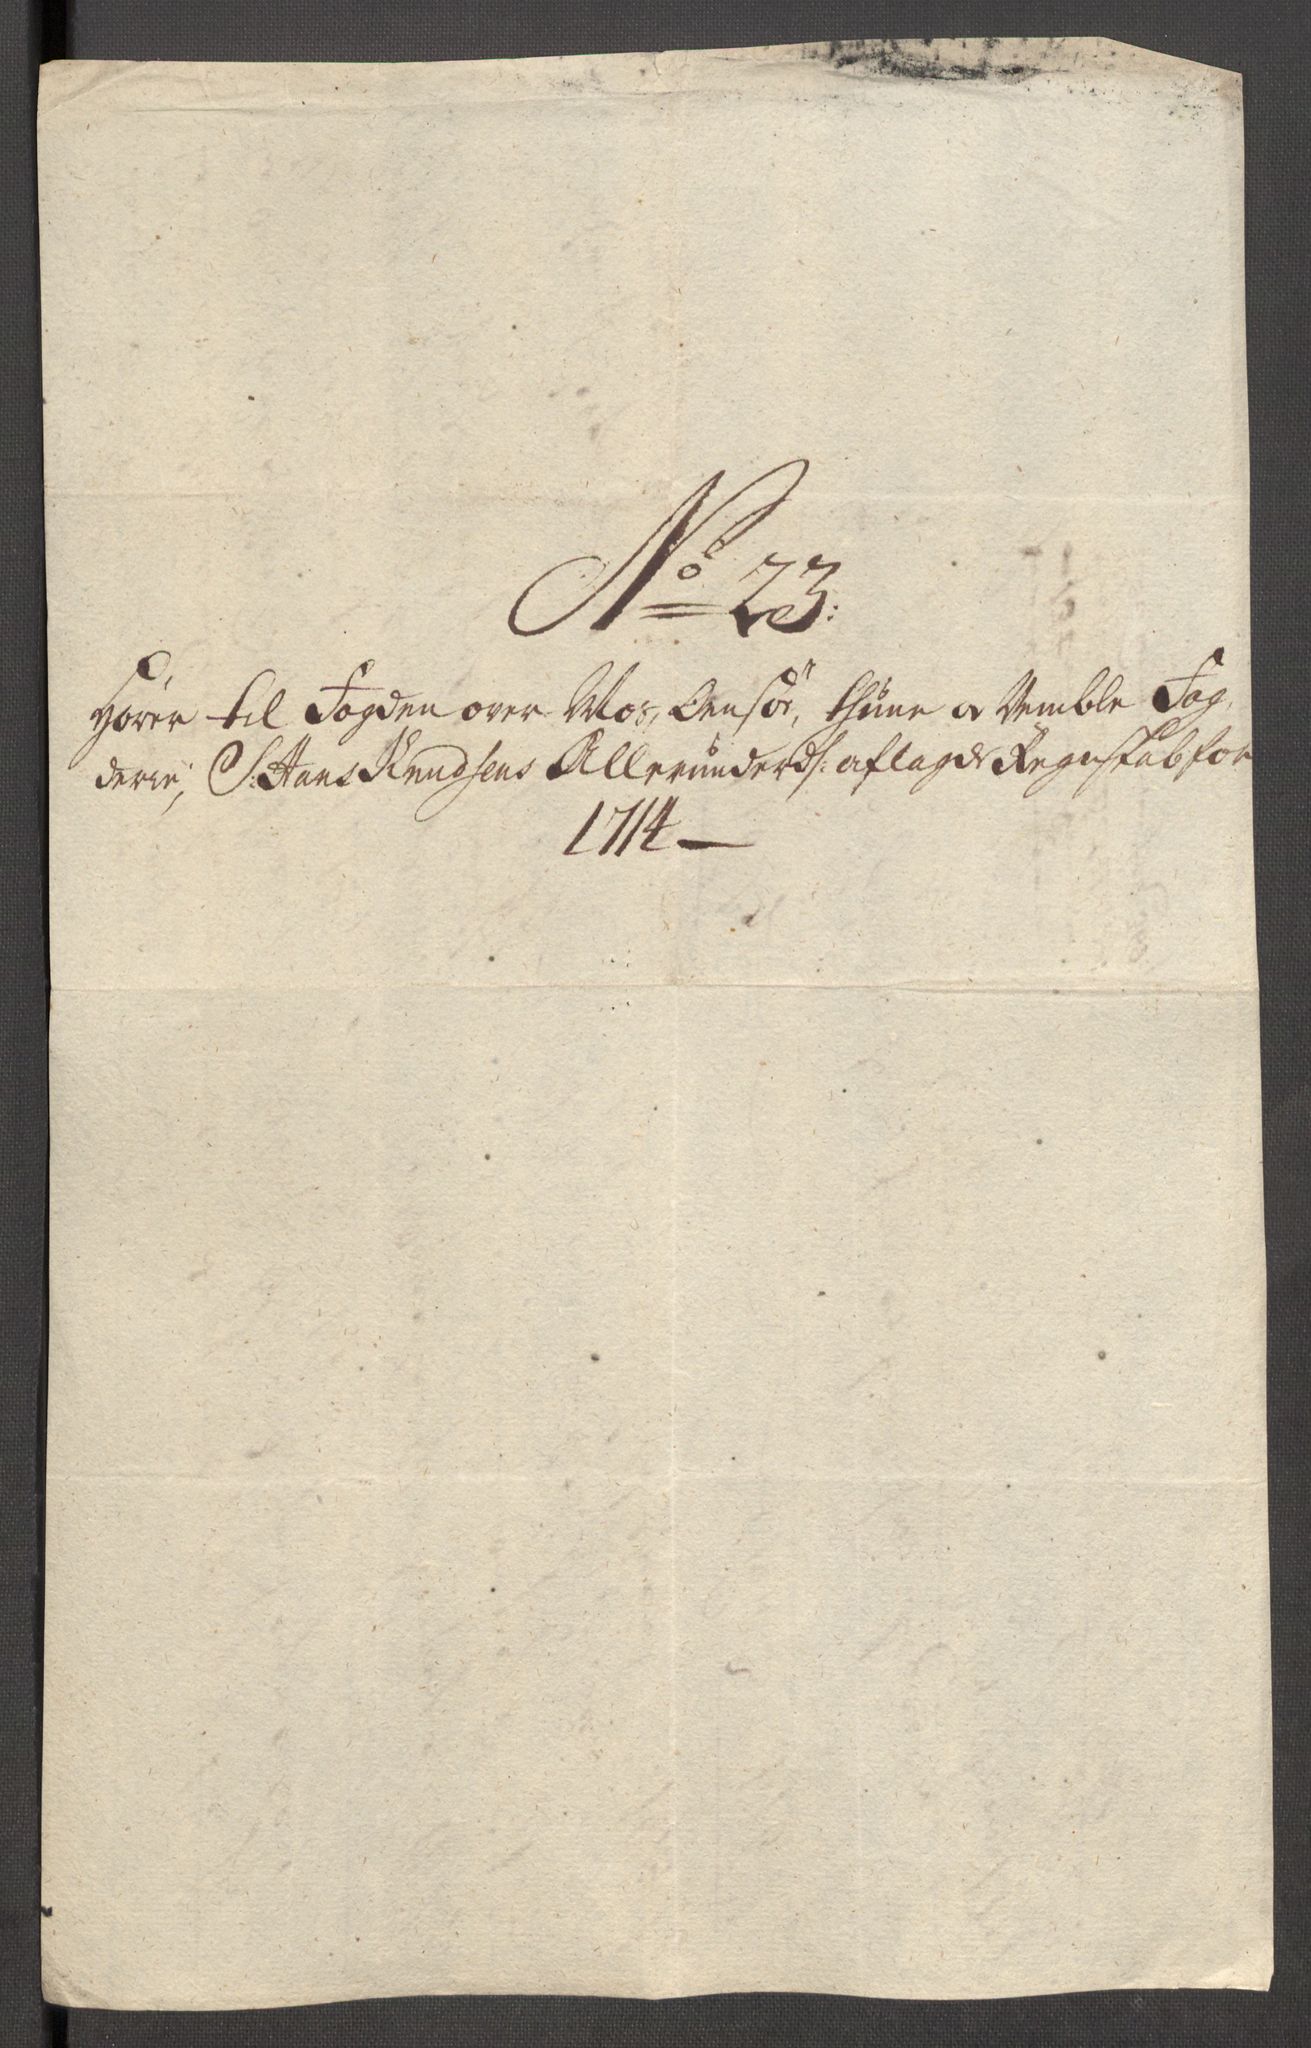 No 23:
Hører til Fogden over Mos, Onsøe, thüne og Vemble Fog,
derie, S: Hans Knudsens Alleründerd: aflagde Regnskab for
1714 —